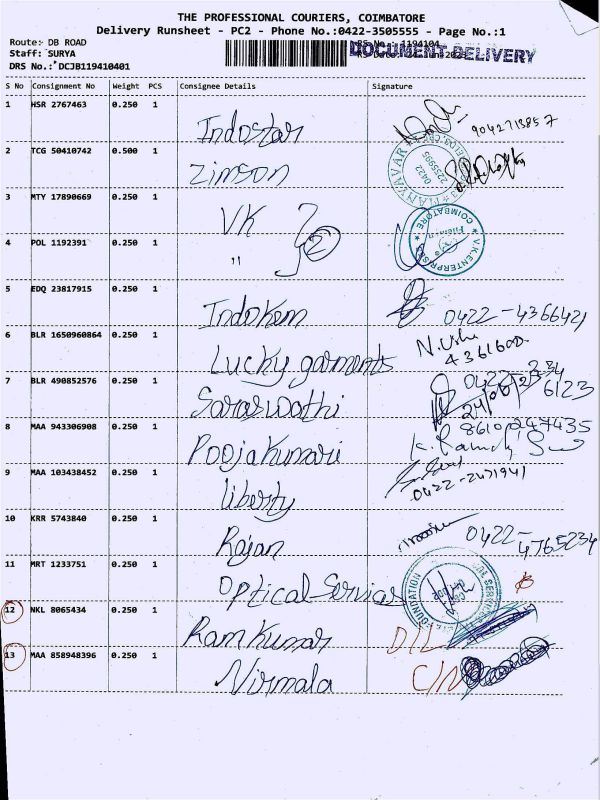 THE PROFESSIONAL COURIERS, COIMBATORE
Delivery Runsheet - PC2 - Phone No.:0422-3505555 - Page No.:1
Route: DB ROAD
Staff: SURYA
DRS No.: DCJB119410401
RS No.: 1194104
DOCUMENT DELIVERY
S No Consignment No Weight PCS Consignee Details Signature
1 HSR 2767463 0.250 1 Indostar 9042713857
2 TCG 50410742 0.500 1 Zimson
0422 2255995
3 MTY 17890669 0.250 1 VK
4 POL 1192391 0.250 1 " 2
V.K.ENTERPRISES COIMBATORE
5 EDQ 23817915 0.250 1 Indokem 0422-4366421
6 BLR 1650960864 0.250 1 Lucky garments N. Usha
4361600
7 BLR 490852576 0.250 1 Saraswathi 0422-234
6123
8 MAA 943306908 0.250 1 Pooja Kumari 8610247435
9 MAA 103438452 0.250 1 liberty 0422-2471941
10 KRR 5743840 0.250 1 Rajan 0422-
4765234
11 MRT 1233751 0.250 1 Optical Services
FOUNDATION
12 NKL 8065434 0.250 1 Ram Kumar D/L
13 MAA 858948396 0.250 1 Nirmala C/N